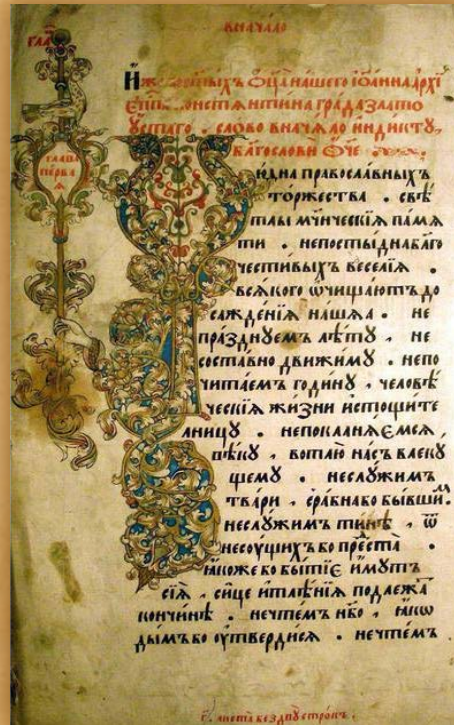 вначало
гла҃
Иже во ст҃ыхъ ѻц҃а нашего іѡанна архї
еп҃па константина града злато
ꙋстаго . слово вначало индиктꙋ,
бл҃гослови ѻч҃е
глава
перва
ѧ
идна православныхъ
торжества . свѣ
тлы мч҃нческїѧ памѧ
ти . непостыдна бл҃го
честивыхъ веселїѧ .
всѧкого ѡчищаютъ до
сажденїѧ нашѧ а . не
празднꙋемъ лѣтꙋ , не
составно движимꙋ . непо
читаемъ годинꙋ , человѣ
ческїѧ жизни истощите
лницꙋ . непоклонѧемсѧ
вѣкꙋ , вотлю насъ влекꙋ
щемꙋ . неслꙋжимъ
твари , сравна бо бывши м .
неслꙋжимъ тинѣ , ѿ
несꙋщихъ бо преста .
ꙗкоже бо бытїе имꙋтъ
сїѧ , сице итлѣнїѧ подлежа
кончинѣ . нечтемъ нб҃о , ꙗкѡ
дымъ бо ꙋтвердисѧ . нечтемъ
листа бездвꙋ строкъ .